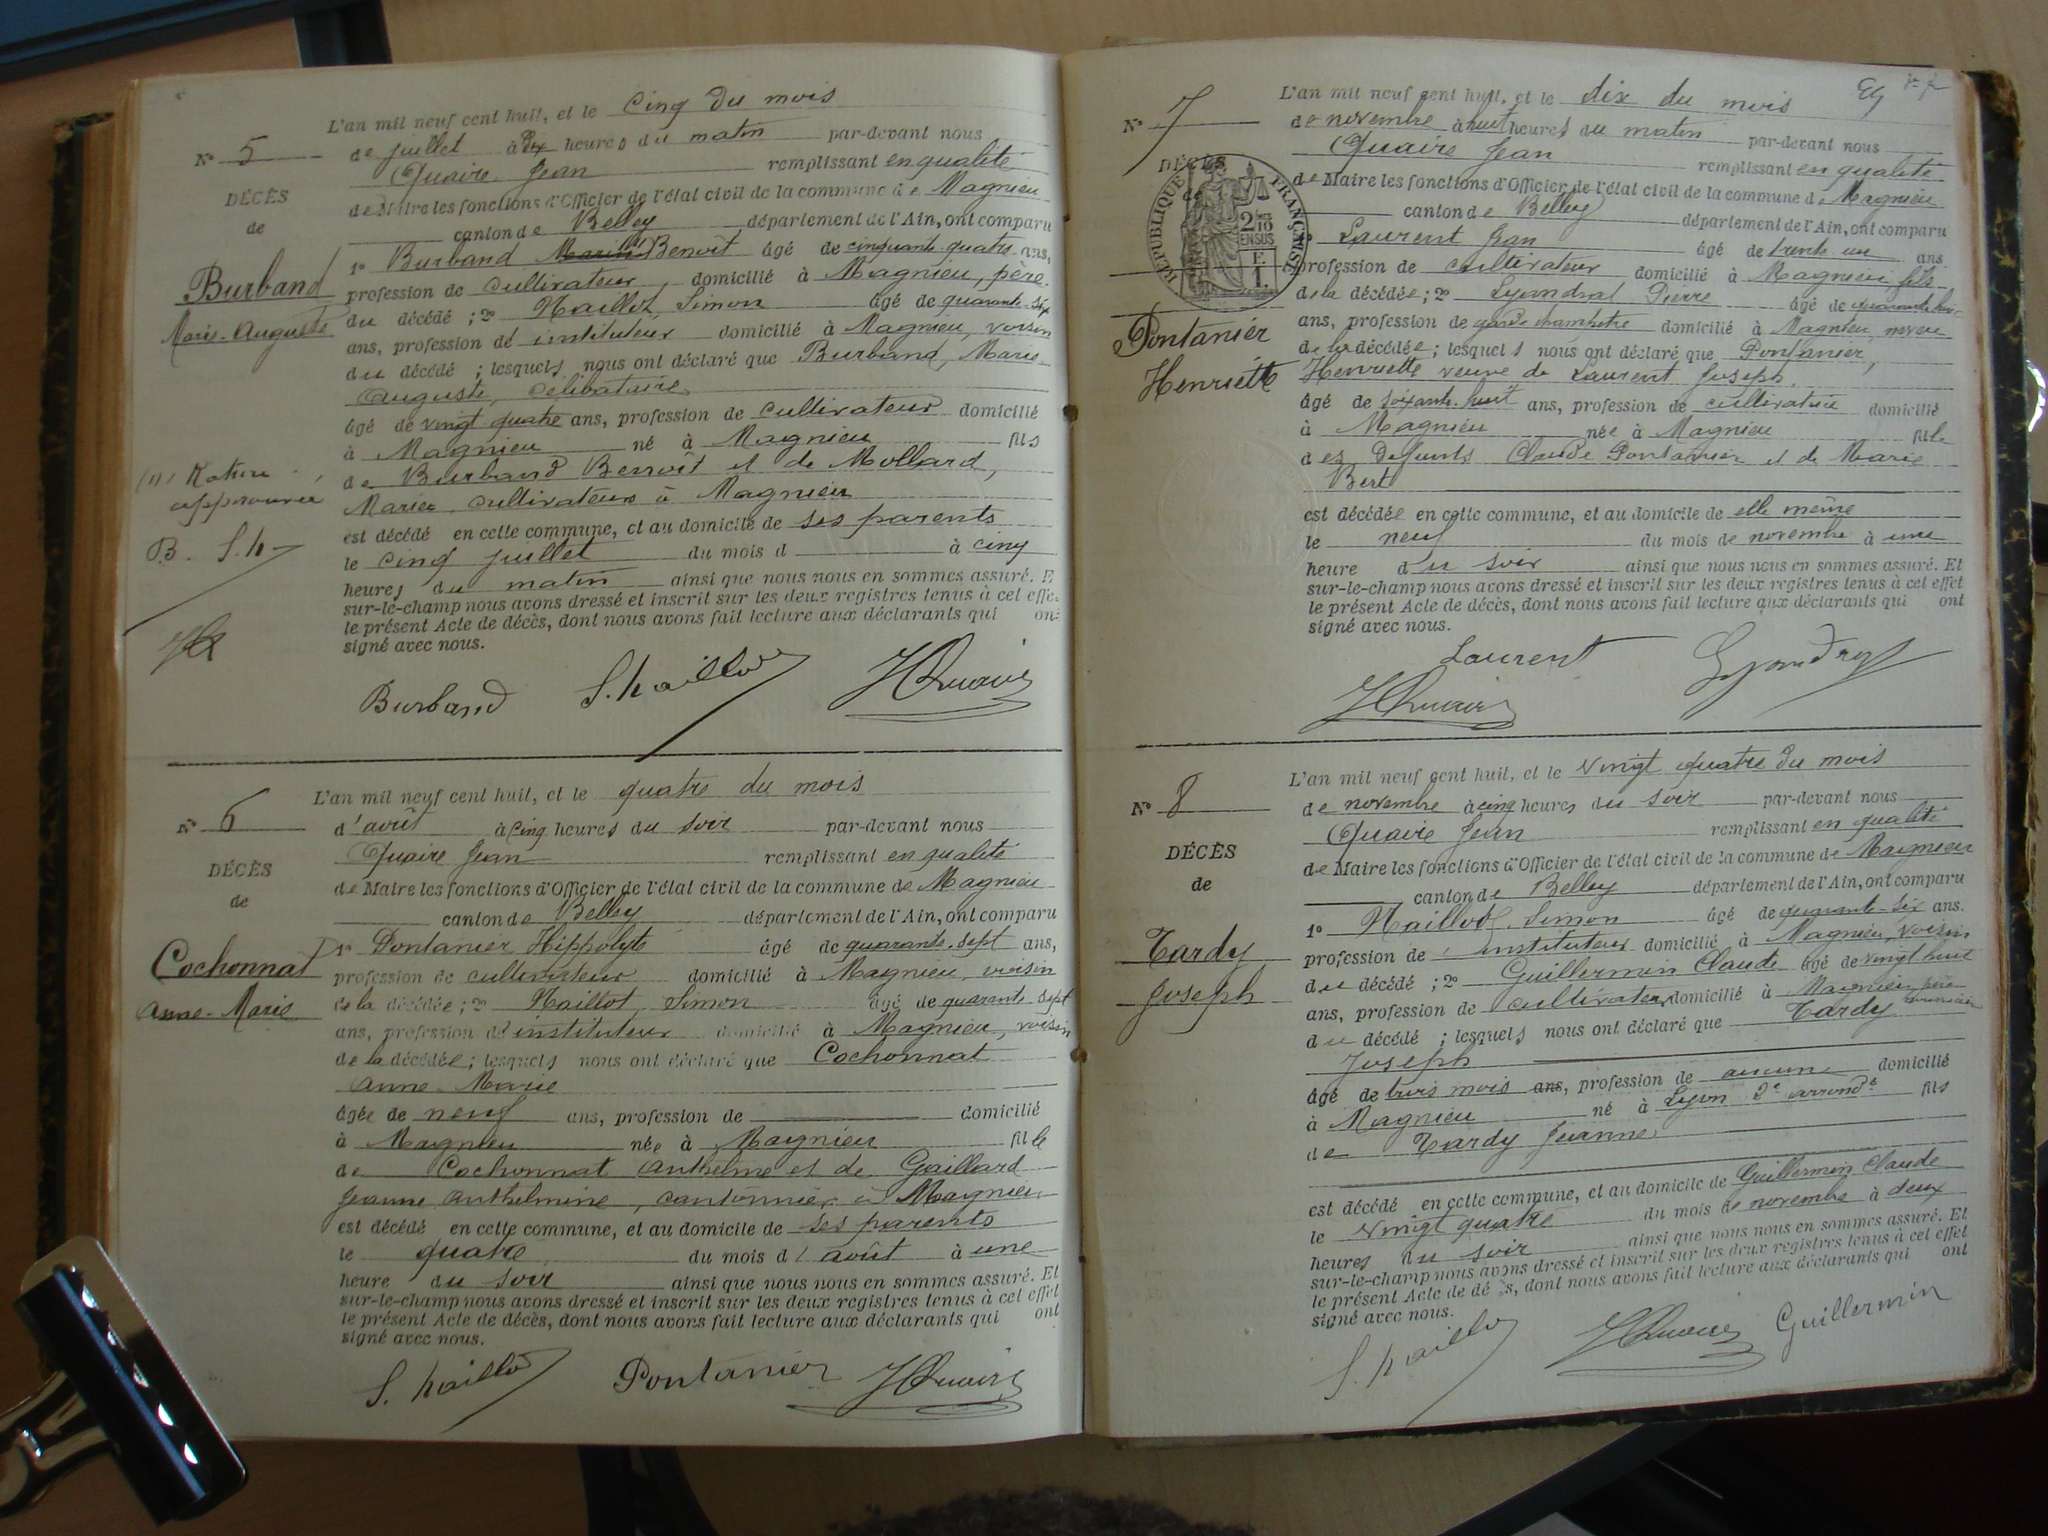 L'an mil neuf cent huit, et le cinq du mois
N° 5
de juillet à dix heures du matin par-devant nous
Quaire Jean remplissant en qualité
DÉCÈS
de Maire les fonctions d'Officier de l'état civil de la commune de Magnieu
de
canton de Belley département de l'Ain, ont comparu
1° Burband Benoît âgé de cinquante-quatre ans,
Burband
profession de cultivateur, domicilié à Magnieu, père
Marie-Auguste
du décédé ; 2° Haillot, Simon âgé de quarante-six
ans, profession d'instituteur domicilié à Magnieu, voisin
du décédé ; lesquels nous ont déclaré que Burband, Marie-
Auguste, célibataire
âgé de vingt quatre ans, profession de cultivateur domicilié
à Magnieu né à Magnieu fils
de Burband Benoît et de Mollard,
(1) Rature
approuvée
Marie, cultivateurs à Magnieu
est décédé en cette commune, et au domicile de ses parents
B. S.h
le cinq juillet du mois d à cinq
heures du matin ainsi que nous nous en sommes assuré. E
sur-le-champ nous avons dressé et inscrit sur les deux registres tenus à cet effe
le présent Acte de décès, dont nous avons fait lecture aux déclarants qui on
signé avec nous.
Burband S. haillot JQuaire
L'an mil neuf cent huit, et le quatre du mois
N° 6
d'août à cinq heures du soir par-devant nous
Quaire Jean remplissant en qualité
DÉCÈS
de Maire les fonctions d'Officier de l'état civil de la commune de Magnieu
de
canton de Belley département de l'Ain, ont comparu
Cochonnat
1° Pontanier Hippolyte âgé de quarante-sept ans,
profession de cultivateur domicilié à Magnieu, voisin
Anne-Marie
de la décédée ; 2° Haillot, Simon âgé de quarante-sept
ans, profession d'instituteur domicilié à Magnieu, voisin
de la décédée ; lesquels nous ont déclaré que Cochonnat
Anne-Marie
âgée de neuf ans, profession de domicilié
à Magnieu née à Magnieu fille
de Cochonnat Anthelme et de Gaillard
Jeanne Anthelmine, cantonnier à Magnieu
est décédé en cette commune, et au domicile de ses parents
le quatre du mois d'août à une
heure du soir ainsi que nous nous en sommes assuré. Et
sur-le-champ nous avons dressé et inscrit sur les deux registres tenus à cet effet
le présent Acte de décès, dont nous avons fait lecture aux déclarants qui ont
signé avec nous.
S. haillot Pontanier JQuaire
L'an mil neuf cent huit, et le dix du mois
N° 7
de novembre à huit heures du matin par-devant nous
Quaire Jean remplissant en qualité
DÉCÈS
de Maire les fonctions d'Officier de l'état civil de la commune de Magnieu
RÉPUBLIQUE FRANÇAISE
2/10 EN SUS
F. 1.
canton de Belley département de l'Ain, ont comparu
Laurent Jean âgé de trente un ans
profession de cultivateur domicilié à Magnieu, fils
de la décédée ; 2° Lyandrat Pierre âgé de
ans, profession de garde champêtre domicilié à Magnieu, neveu
Pontanier
Henriette
de la décédée ; lesquels nous ont déclaré que Pontanier,
Henriette veuve de Laurent Joseph
âgé de soixante-huit ans, profession de cultivatrice domicilié
à Magnieu née à Magnieu fille
des défunts Claude Pontanier et de Marie
Bert
est décédée en cette commune, et au domicile de elle même
le neuf du mois de novembre à une
heure du soir ainsi que nous nous en sommes assuré. Et
sur-le-champ nous avons dressé et inscrit sur les deux registres tenus à cet effet
le présent Acte de décès, dont nous avons fait lecture aux déclarants qui ont
signé avec nous.
Laurent
JQuaire
L'an mil neuf cent huit, et le vingt quatre du mois
N° 8
de novembre à cinq heures du soir par-devant nous
Quaire Jean remplissant en qualité
DÉCÈS
de Maire les fonctions d'Officier de l'état civil de la commune de Magnieu
de
canton de Belley département de l'Ain, ont comparu
1° Haillot, Simon âgé de quarante-six ans.
Tardy
profession de instituteur domicilié à Magnieu, voisin
du décédé ; 2° Guillermin Claude âgé de vingt huit
Joseph
ans, profession de cultivateur domicilié à Magnieu, père nourricier
du décédé ; lesquels nous ont déclaré que Tardy
Joseph
âgé de trois mois ans, profession de aucune domicilié
à Magnieu né à Lyon 2e arrondt fils
de Tardy Jeanne
est décédé en cette commune, et au domicile de Guillermin Claude
le vingt quatre du mois de novembre à deux
heures du soir ainsi que nous nous en sommes assuré. Et
sur-le-champ nous avons dressé et inscrit sur les deux registres tenus à cet effet
le présent Acte de décès, dont nous avons fait lecture aux déclarants qui ont
signé avec nous.
S. haillot JQuaire Guillermin